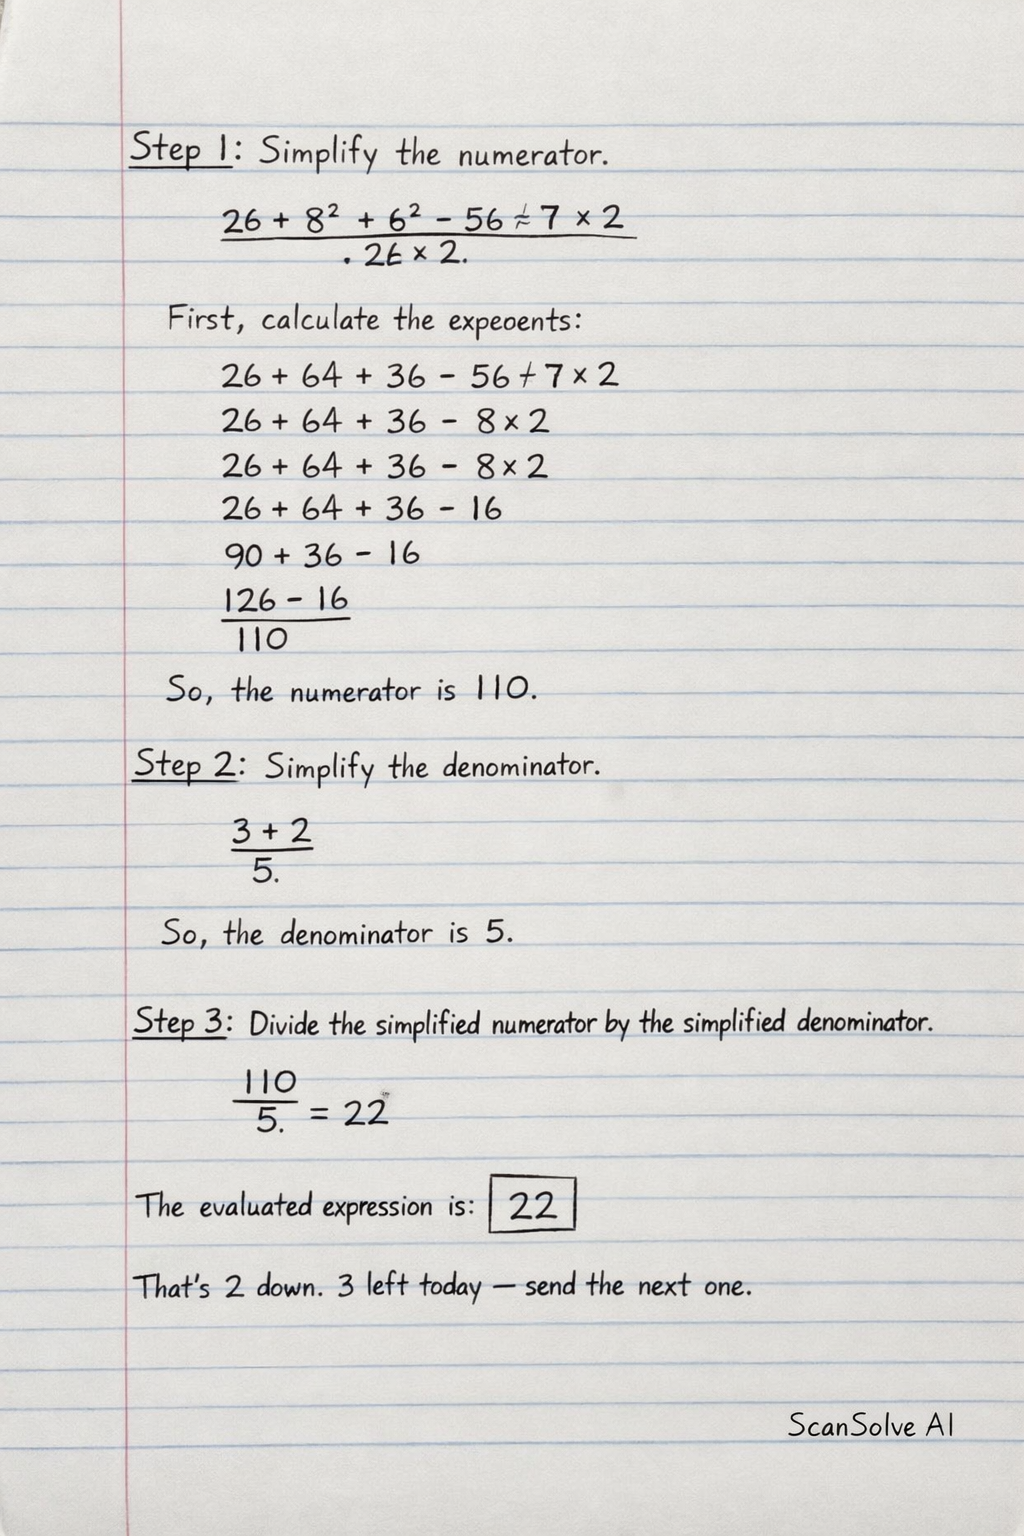 Step 1: Simplify the numerator.
26 + 8² + 6² - 56 ÷ 7 × 2
. 26 × 2.
First, calculate the expeoents:
26 + 64 + 36 - 56 ÷ 7 × 2
26 + 64 + 36 - 8 × 2
26 + 64 + 36 - 8 × 2
26 + 64 + 36 - 16
90 + 36 - 16
126 - 16
110
So, the numerator is 110.
Step 2: Simplify the denominator.
3 + 2
5.
So, the denominator is 5.
Step 3: Divide the simplified numerator by the simplified denominator.
110
5. = 22
The evaluated expression is: 22
That's 2 down. 3 left today — send the next one.
ScanSolve AI